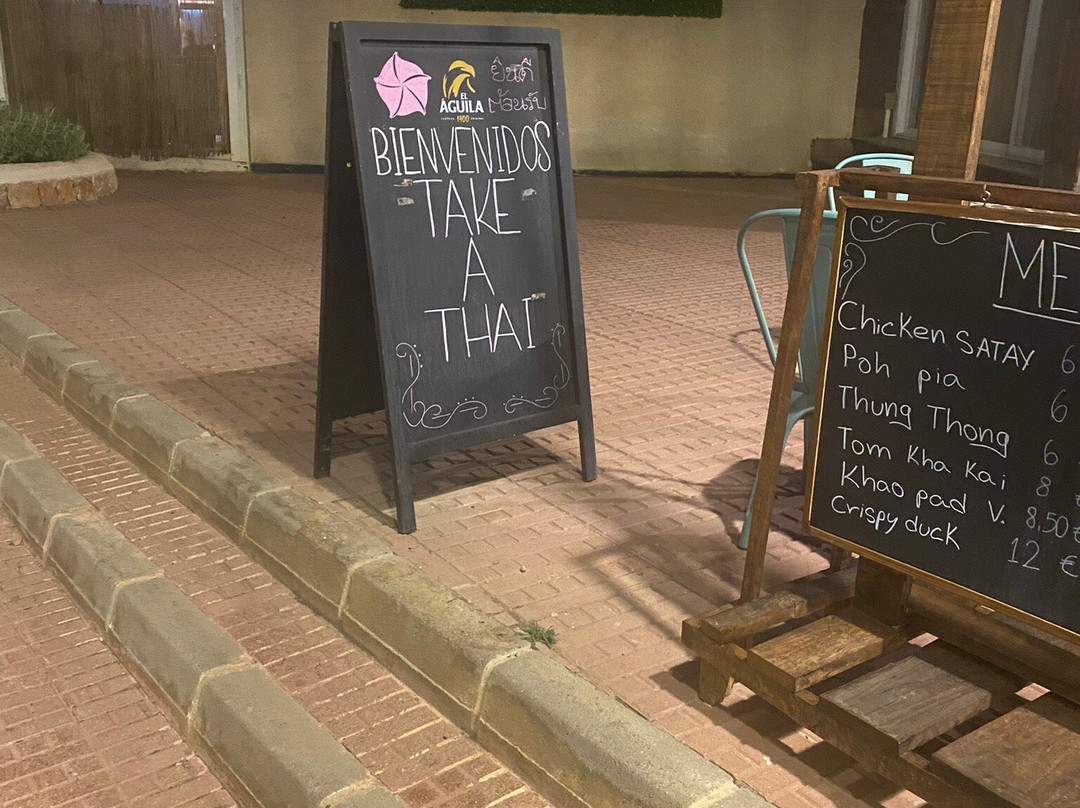 ยินดี
ต้อนรับ
EL
ÁGUILA
1900
BIENVENIDOS
TAKE
A
THAI
ME
Chicken SATAY 6
Poh pia 6
Thung Thong 6
Tom Kha Kai 8
Khao pad V. 8,50€
Crispy duck 12 €